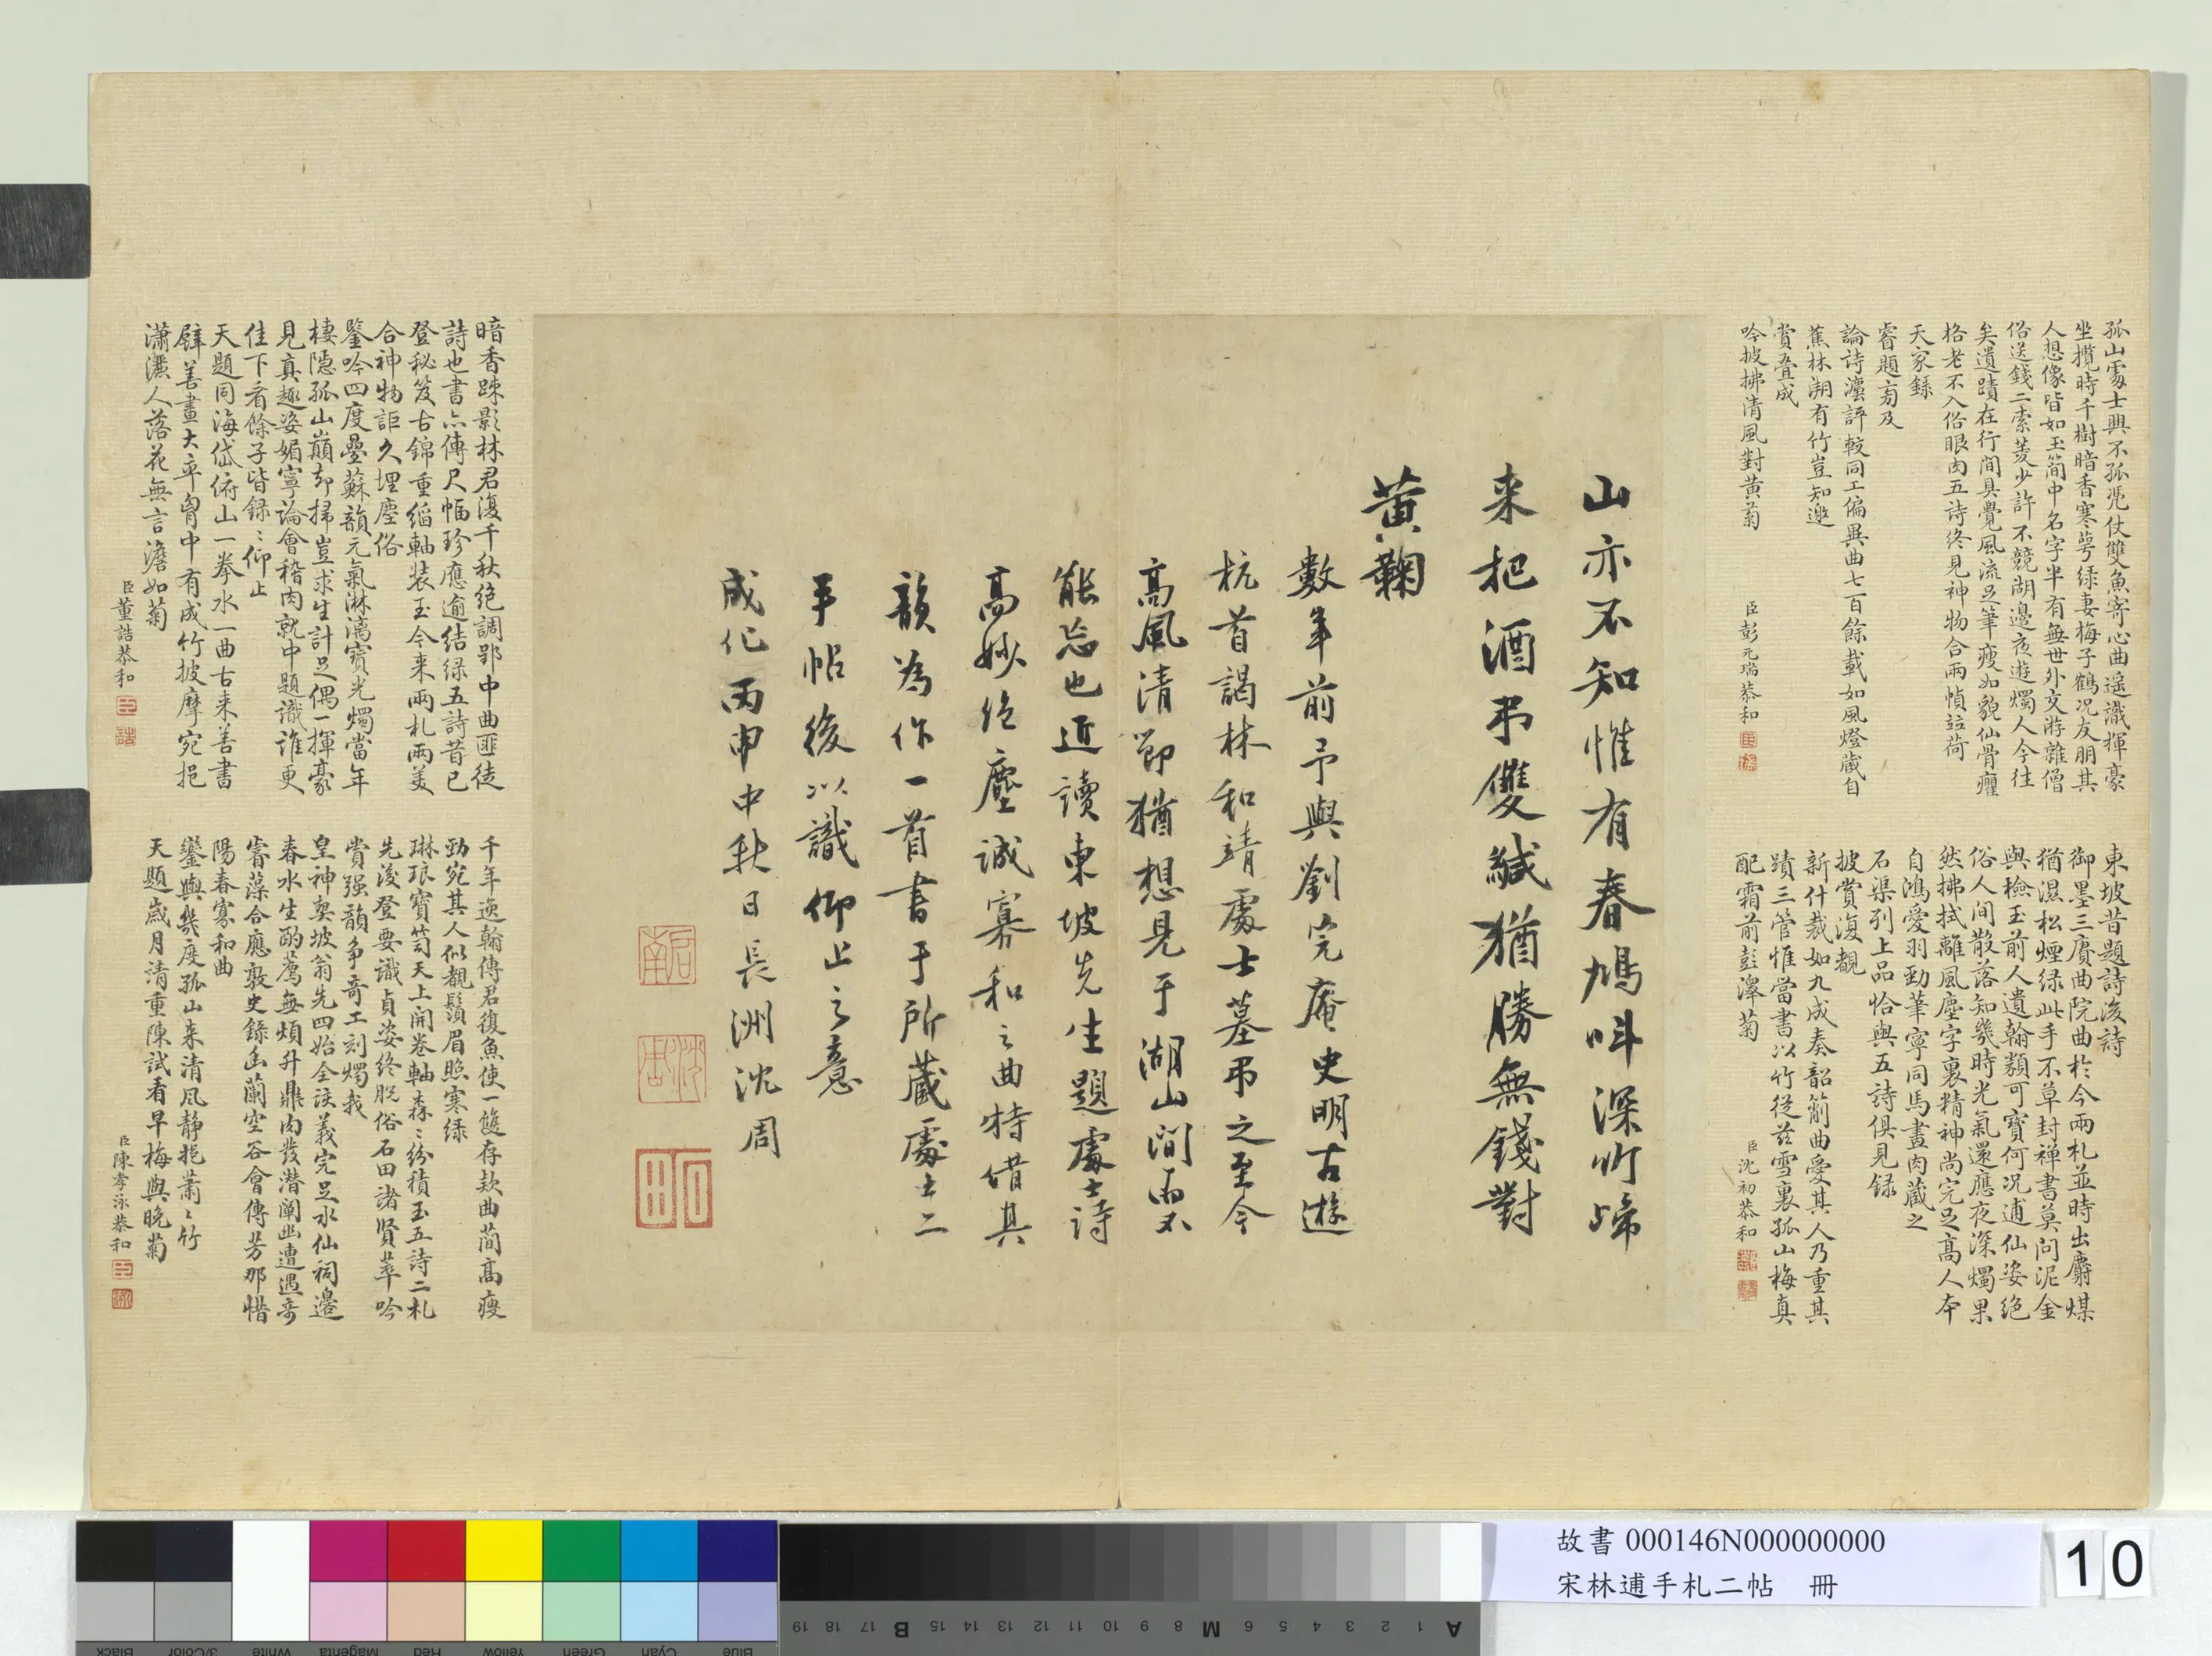 孤山處士興不孤凴仗雙魚寄心曲遥識揮豪
坐攬時千樹暗香寒萼绿妻梅子鶴况友朋其
人想像皆如玉簡中名字半有無世外交游雜僧
俗送錢二索菱少許不競湖邊夜遊燭人今往
矣遺蹟在行間具覺風流足筆瘦如貌仙骨癯
格老不入俗眼肉五詩终見神物合兩幀竝荷
天家録
睿題㫄及
論詩澐評較同工偏異曲七百餘載如風燈藏自
蕉林溯有竹豈知邀
賞叠成
吟披拂清風對黄菊
臣彭元瑞恭和
東坡昔題詩後詩
御墨三賡曲院曲於今兩札並時出麝煤
猶濕松煙绿此手不草封禅書莫问泥金
與檢玉前人遺翰纇可寳何况逋仙姿绝
俗人间散落知幾時光氣還應夜深燭果
然拂拭離風塵字裏精神尚完足髙人本
自鴻愛羽勁筆寧同馬畫肉藏之
石渠列上品恰與五詩俱見録
披賞復覩
新什裁如九成奏韶箾曲愛其人乃重其
蹟三管惟當書以竹從兹雪裏孤山梅真
配霜前彭澤菊
臣沈初恭和
山亦不知惟有春鳩呌深竹啼
来把酒弔雙緘猶勝無錢對
黄鞠
數年前予與劉完庵史明古遊
杭首謁林和靖處士墓弔之至今
髙風清節猶想見于湖山間而不
能忘也近讀東坡先生題處士詩
髙妙绝塵誠寡和之曲特借其
韻為作一首書于所藏處士二
手帖後以識仰止之意
成化丙申中秋日長洲沈周
暗香踈影林君復千秋绝調郢中曲匪徒
詩也書亦傳尺幅珍應逾结绿五詩昔已
登秘笈古錦重縚軸装玉今来兩札兩美
合神物詎久埋塵俗
鑒吟四度疊蘇韻元氣淋漓寳光燭當年
棲隠孤山巔却掃豈求生計足偶一揮豪
見真趣姿媚寧論會稽肉就中題識誰更
佳下看餘子皆録〻仰止
天題同海岱俯山一拳水一曲古来善書
擘善畫大率胷中有成竹披摩宛挹
瀟灑人落花無言澹如菊
臣董誥恭和
千年逸翰傳君復魚使一雙存欵曲蕳髙瘦
勁宛其人似覩鬚眉照寒绿
琳琅寳笥天上開卷軸森〻紛積玉五詩二札
先後登要識貞姿终脱俗石田諸賢華吟
賞强韻争竒工刻燭我
皇神契坡翁先四始全该義完足水仙祠邉
春水生酌薦無煩升鼎肉發潜闡幽遭遇竒
睿藻合應敦史錄幽蘭空谷會傳芳那惜
陽春寡和曲
鑾輿幾度孤山来清風静挹蕭〻竹
天題歳月清重陳試看早梅與晩菊
臣陳孝泳恭和
故書 000146N000000000
宋林逋手札二帖 冊
10
Black
3/Color
White
Magenta
Red
Yellow
Green
Cyan
Blue
A 1 2 3 4 5 6 M 8 9 10 11 12 13 14 15 B 17 18 19